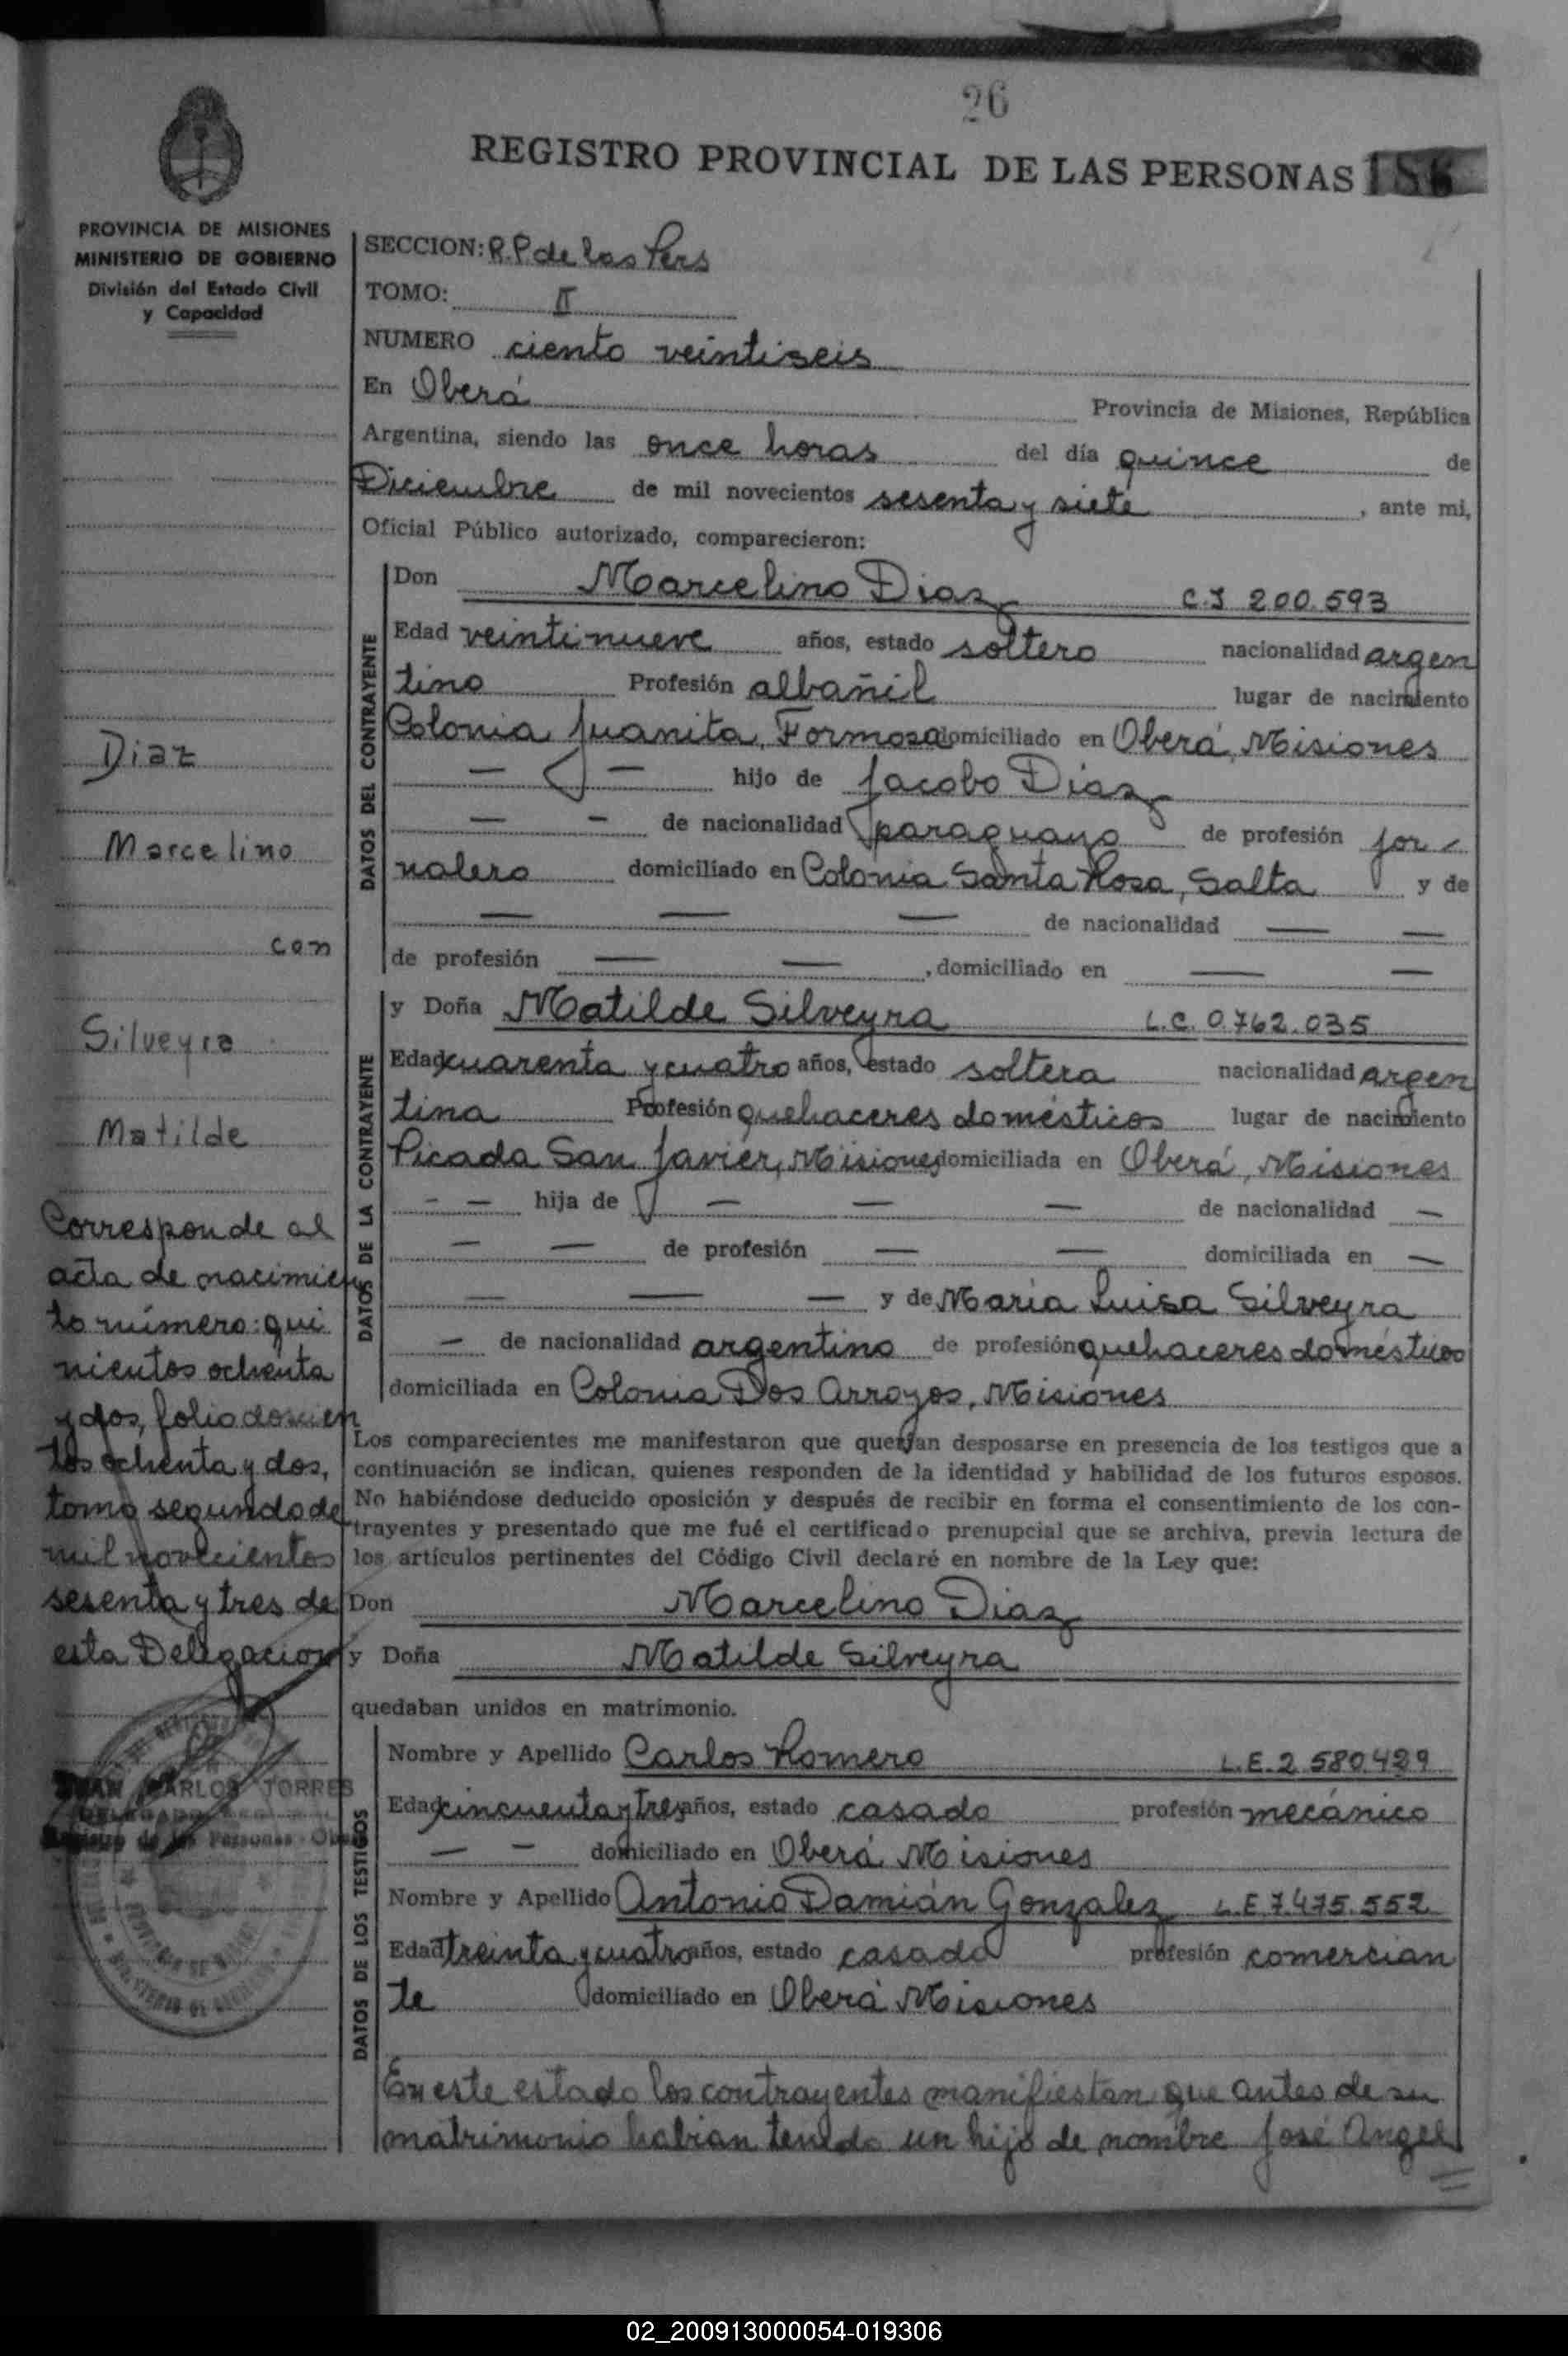 26
REGISTRO PROVINCIAL DE LAS PERSONAS 186
PROVINCIA DE MISIONES
MINISTERIO DE GOBIERNO
División del Estado Civil
y Capacidad
SECCION: R.P. de las Pers
TOMO: II
NUMERO ciento veintiseis
En Oberá Provincia de Misiones, República
Argentina, siendo las once horas del día quince de
Diciembre de mil novecientos sesenta y siete, ante mi,
Oficial Público autorizado, comparecieron:
DATOS DEL CONTRAYENTE
Don Marcelino Diaz C.I 200.593
Edad veintinueve años, estado soltero nacionalidad argen
tino Profesión albañil lugar de nacimiento
Colonia Juanita, Formosa domiciliado en Oberá, Misiones
— — hijo de Jacobo Diaz
— - de nacionalidad paraguayo de profesión jor-
nalero domiciliado en Colonia Santa Rosa, Salta y de
— — — de nacionalidad — —
de profesión — — , domiciliado en — —
DATOS DE LA CONTRAYENTE
y Doña Matilde Silveyra L.C. 0.762.035
Edad cuarenta y cuatro años, estado soltera nacionalidad argen
tina Profesión quehaceres domésticos lugar de nacimiento
Picada San Javier, Misiones domiciliada en Oberá, Misiones
- — hija de — — — de nacionalidad —
— — de profesión — — domiciliada en —
— — — y de María Luisa Silveyra
— de nacionalidad argentino de profesión quehaceres domésticos
domiciliada en Colonia Dos Arroyos, Misiones
Los comparecientes me manifestaron que querían desposarse en presencia de los testigos que a
continuación se indican, quienes responden de la identidad y habilidad de los futuros esposos.
No habiéndose deducido oposición y después de recibir en forma el consentimiento de los con-
trayentes y presentado que me fué el certificado prenupcial que se archiva, previa lectura de
los artículos pertinentes del Código Civil declaré en nombre de la Ley que:
Don Marcelino Diaz
y Doña Matilde Silveyra
quedaban unidos en matrimonio.
DATOS DE LOS TESTIGOS
Nombre y Apellido Carlos Romero L.E. 2.580.429
Edad cincuenta y tres años, estado casado profesión mecánico
— — domiciliado en Oberá Misiones
Nombre y Apellido Antonio Damián Gonzalez L.E 7.475.552
Edad treinta y cuatro años, estado casado profesión comercian
te domiciliado en Oberá Misiones
En este estado los contrayentes manifiestan que antes de su
matrimonio habian tenido un hijo de nombre José Angel
Diaz
Marcelino
con
Silveyra
Matilde
Corresponde al
acta de nacimien
to número: qui
nientos ochenta
y dos, folio doscien
tos ochenta y dos,
tomo segundo de
mil novecientos
sesenta y tres de
esta Delegacion
JUAN CARLOS TORRES
DELEGADO
Registro de las Personas - Oberá
02_200913000054-019306